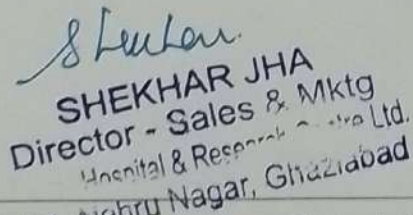 Shekhar
SHEKHAR JHA
Director - Sales & Mktg
Hospital & Research Centre Ltd.
Nehru Nagar, Ghaziabad